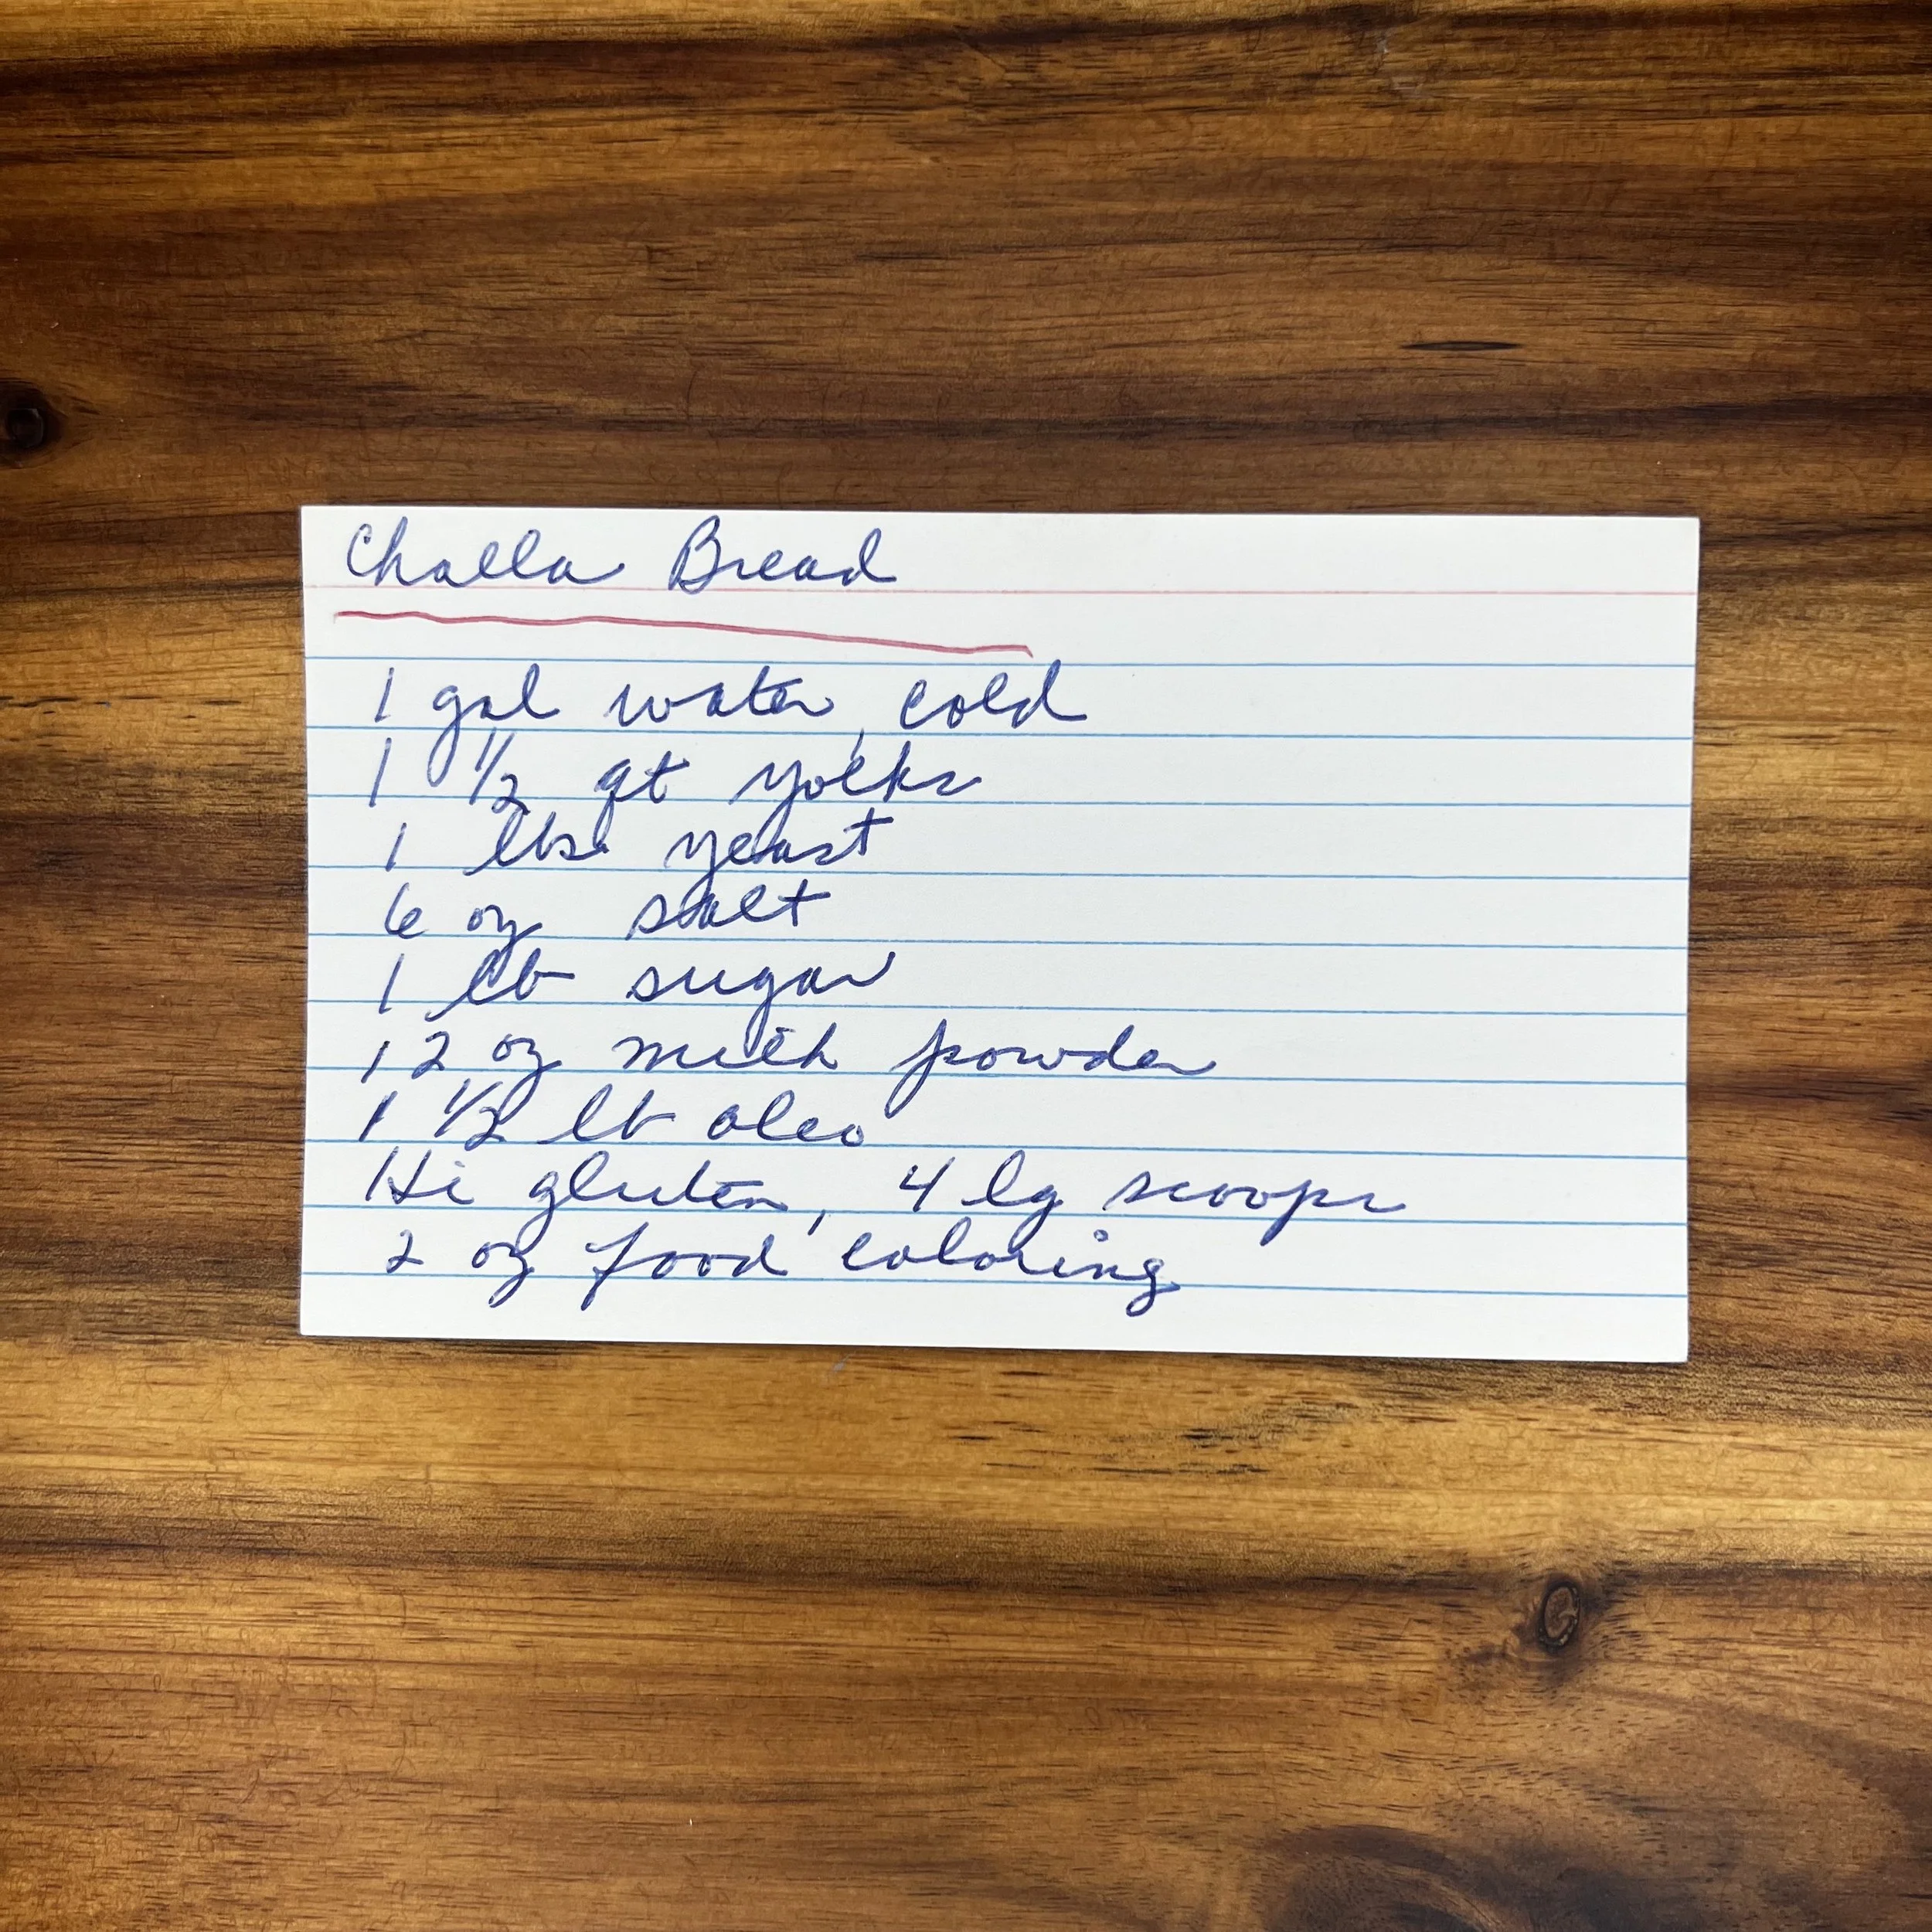 Challa Bread
1 gal water, cold
1 1/2 qt yolks
1 lbs yeast
6 oz salt
1 lb sugar
12 oz milk powder
1 1/2 lb oleo
Hi gluten, 4 lg scoops
2 oz food coloring